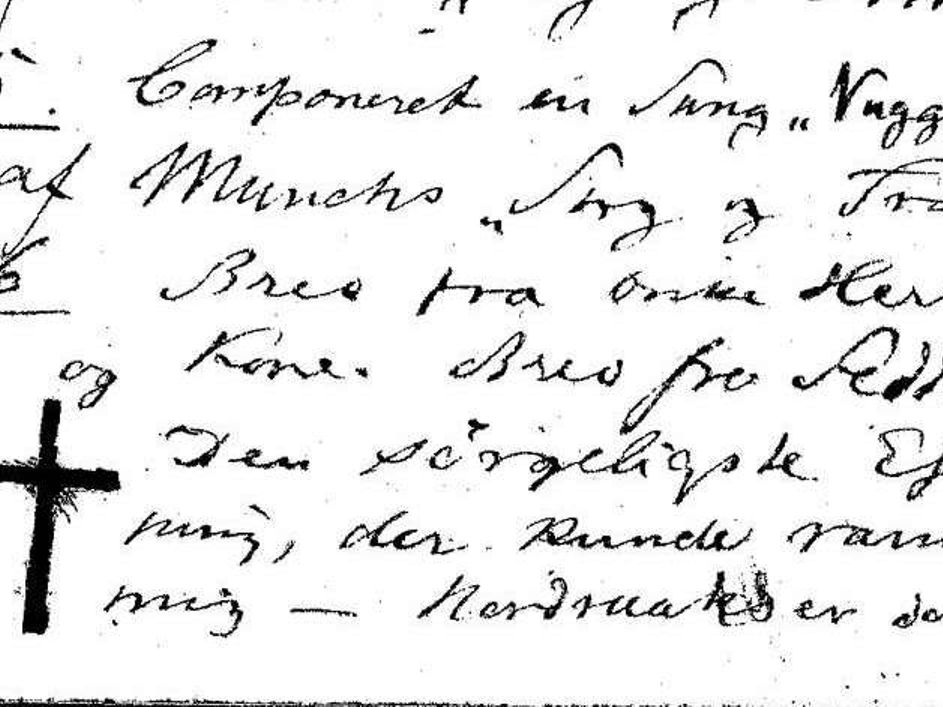 5. Componeret en Sang „Vugg
af Munchs „Sorg og Trø
6 Brev fra Onkel Her
og Kone. Brev fra Feddersen
Den sörgeligste Ef
ning, der kunde ram
mig — Nordraak er dø